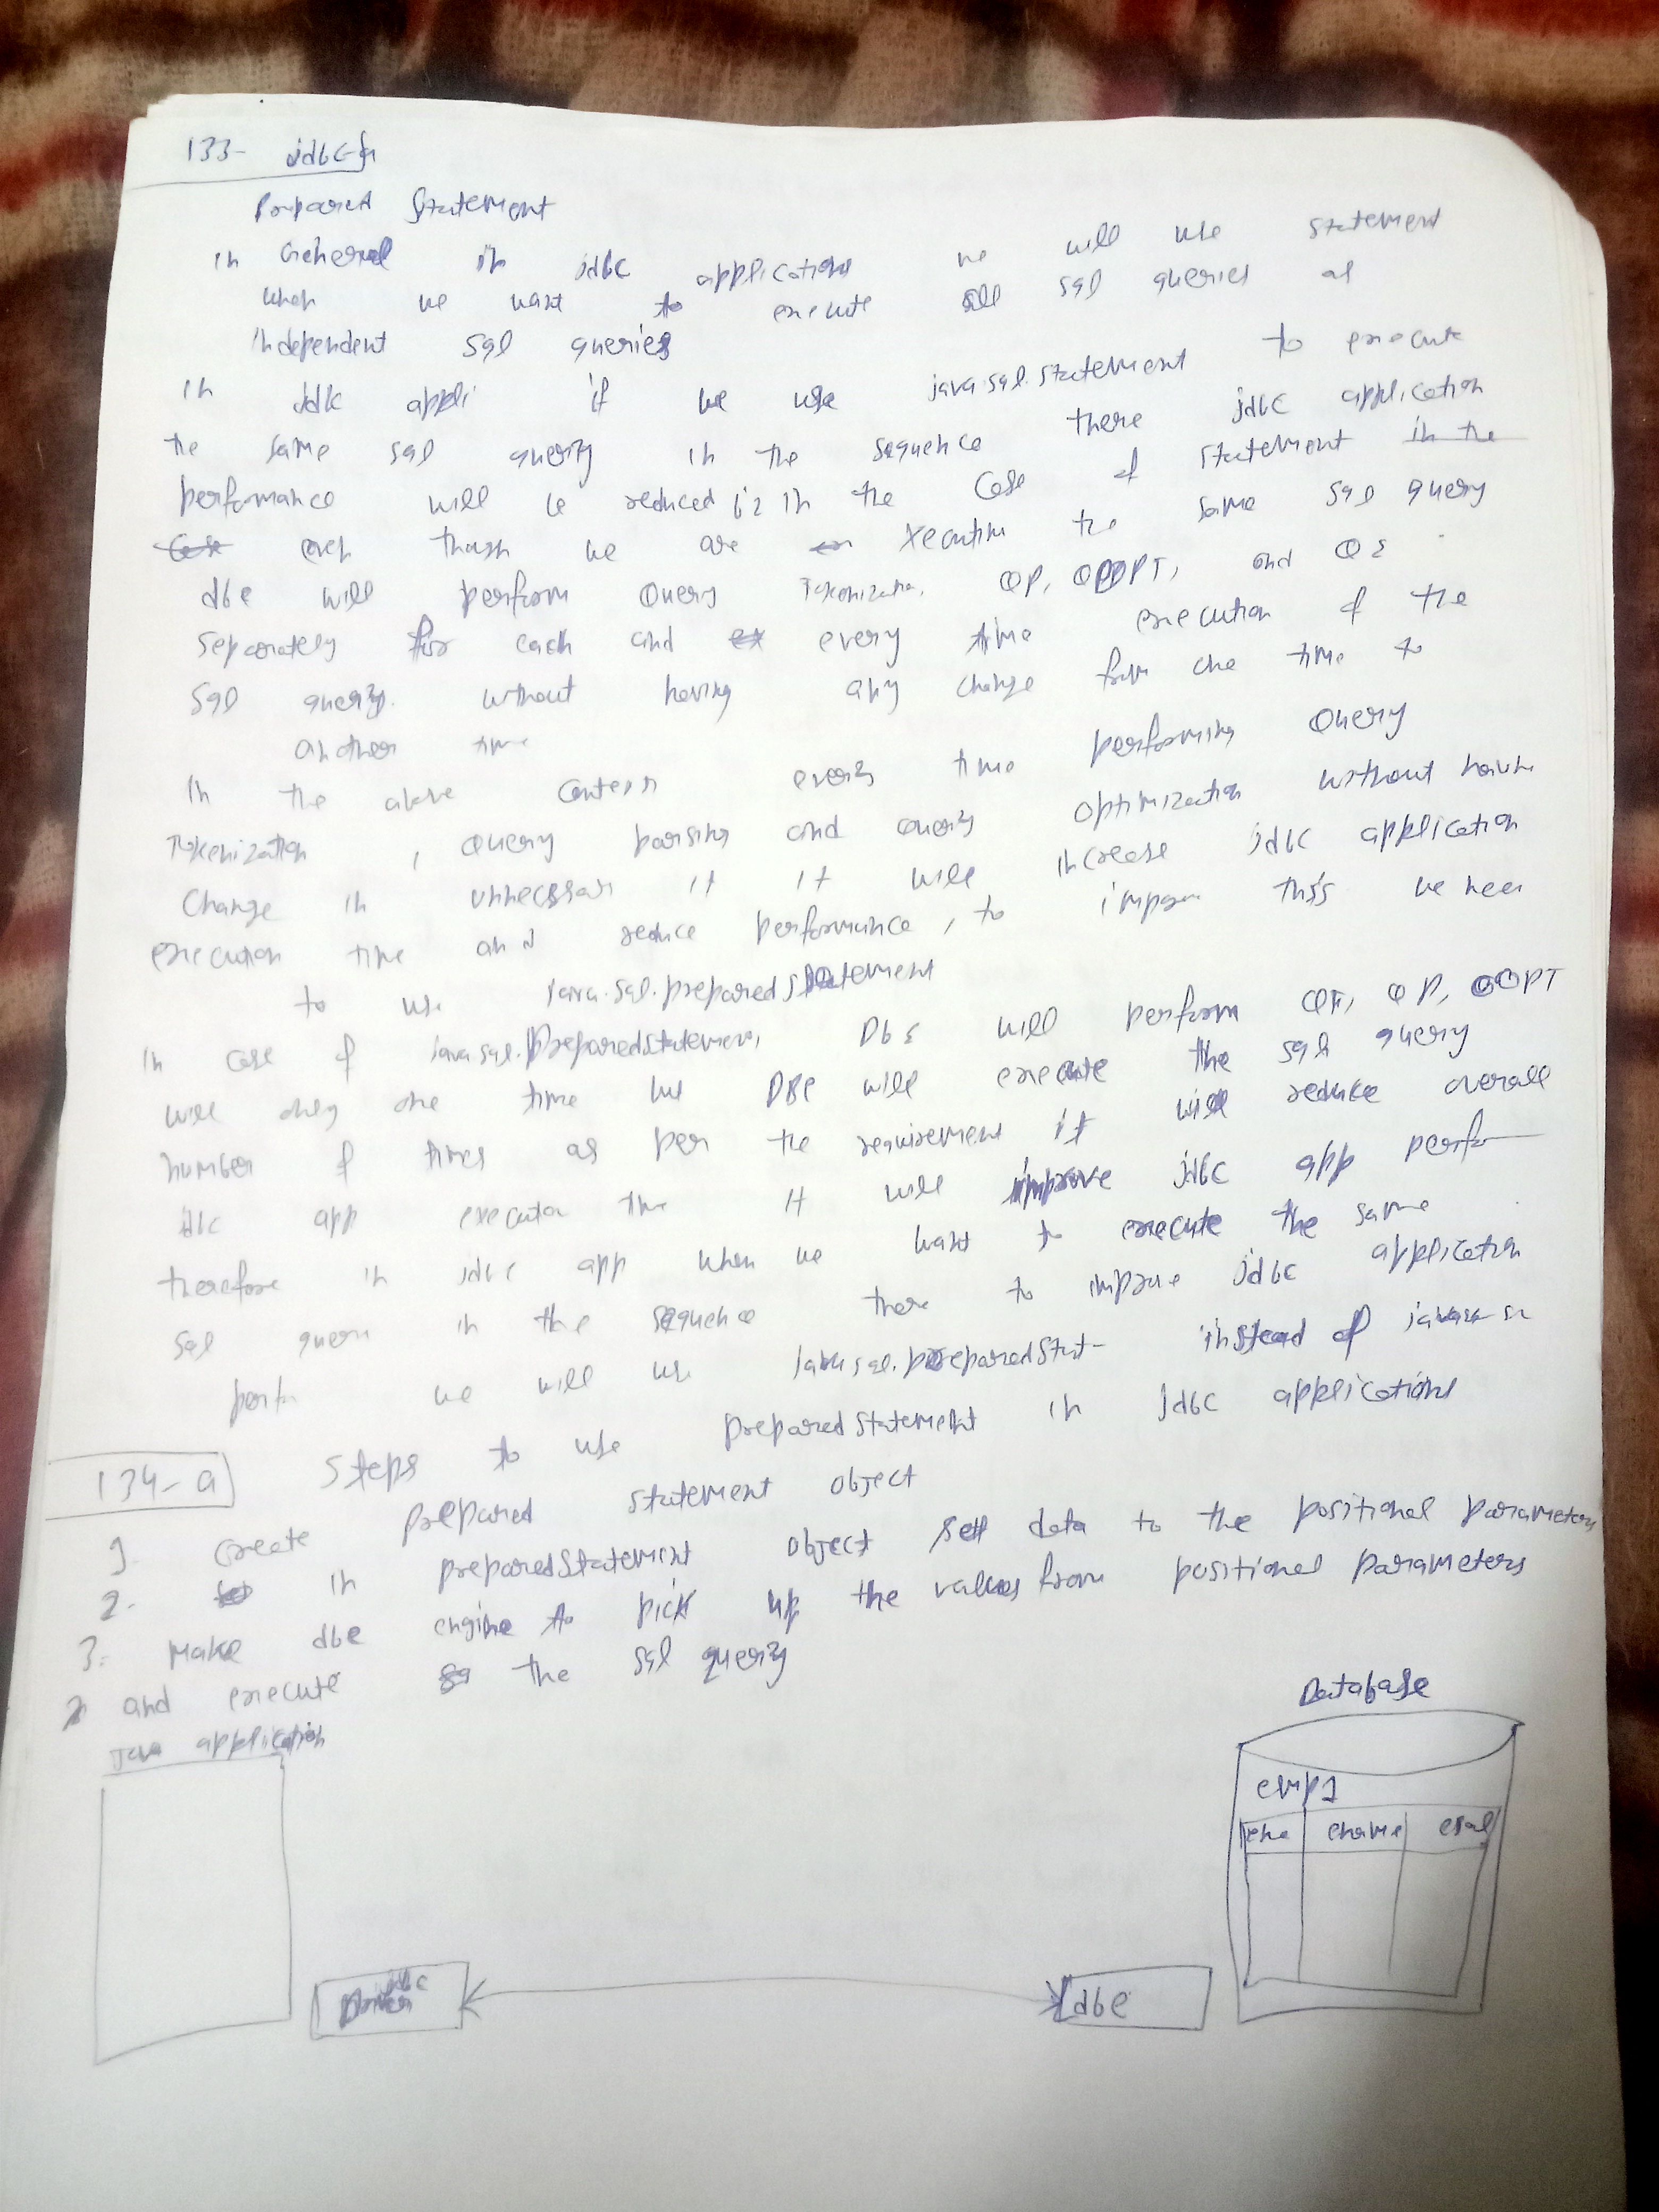 133- jdbc-fn
Prepared Statement
in General in jdbc applications we will use statement
when we want to execute all sql queries as
independent sql queries
in jdbc appli if we use java.sql.statement to execute
the same sql query in the sequence there jdbc application
performance will be reduced bz in the case of statement in the
case even though we are Xecution the same sql query
dbe will perform Query Tokenization, QP, QOPT, and QE
separately for each and every time execution of the
sql query. without having any change from one time to
another time
In the above every time performing Query
Tokenization , Query parsing and query optimization without having
Change in unnecessar it it will increase jdbc application
execution time and reduce performance, to improve this we need
to use java.sql.preparedStatement
In case of java.sql.PreparedStatement, DbE will perform QT, QP, QOPT
will only one time but DBE will execute the sql query
number of times as per the requirement it will reduce overall
jdbc app execution time it will improve jdbc app perfo
therefore in jdbc app when we want to execute the same
sql query in the sequence there to improve jdbc application
perfo we will use java.sql.preparedStat- instead of
134-a Steps to use preparedStatement in Jdbc applications
1. Create prepared statement object
2. in preparedStatement object set data to the positional parameters
3. Make dbe engine to pick up the values from positional parameters
and execute the sql query
Java application
Database
emp1
eno ename esal
jdbc
Driver
dbe